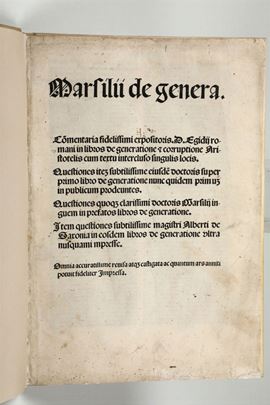 Marsilii de genera.
Cōmentaria fidelissimi expositoris.D.Egidij ro-
mani in libros de generatione ⁊ corruptione Ari-
stotelis cum textu intercluso singulis locis.
Questiones itez subtilissime eiusdē doctoris super
primo libro de generatione nunc quidem primuz
in publicum prodeuntes.
Questiones quoqz clarissimi doctoris Marsilij in-
guem in prefatos libros de generatione.
Item questiones subtilissime magistri Alberti de
Saxonia in eosdem libros de generatione vltra
nusquami impresse.
Omnia accuratissime reuisa atqz castigata ac quantum ars anniti
potuit fideliter Impressa.